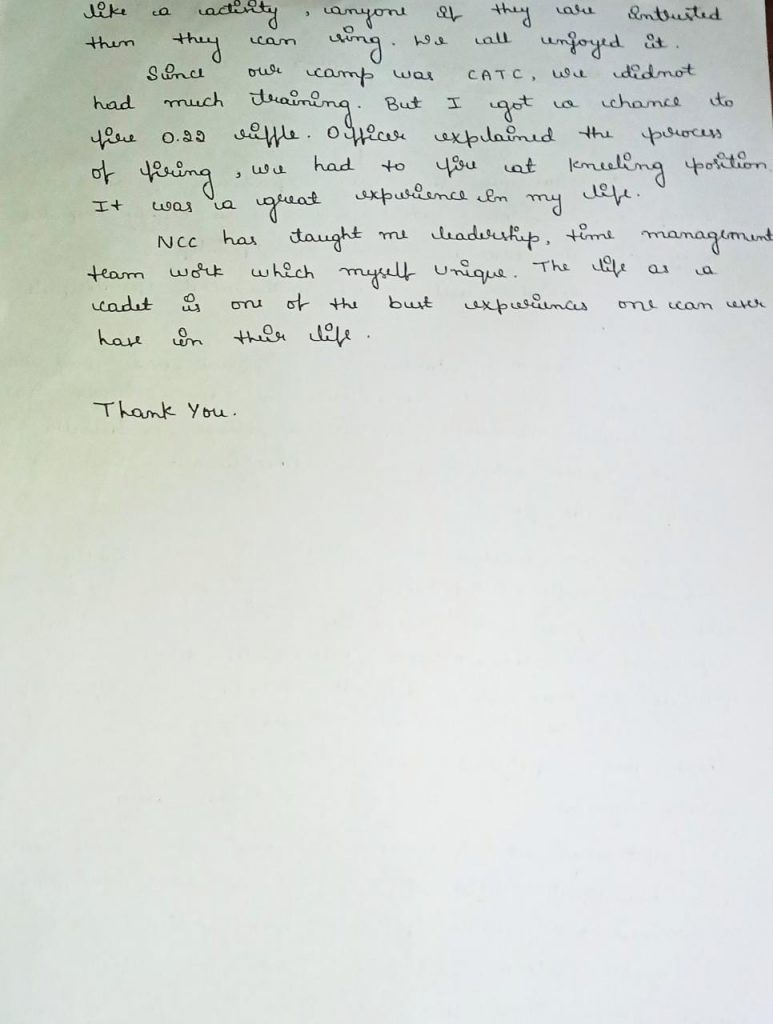 like a activity, anyone if they are intrusted
then they can sing. We all enjoyed it.
Since our camp was CATC, we didnot
had much training. But I got a chance to
fire 0.22 riffle. Officer explained the process
of firing, we had to fire at kneeling position
It was a great experience in my life.
NCC has taught me leadership, time management
team work which myself unique. The life as a
cadet is one of the best experiences one can ever
have in their life.
Thank You.